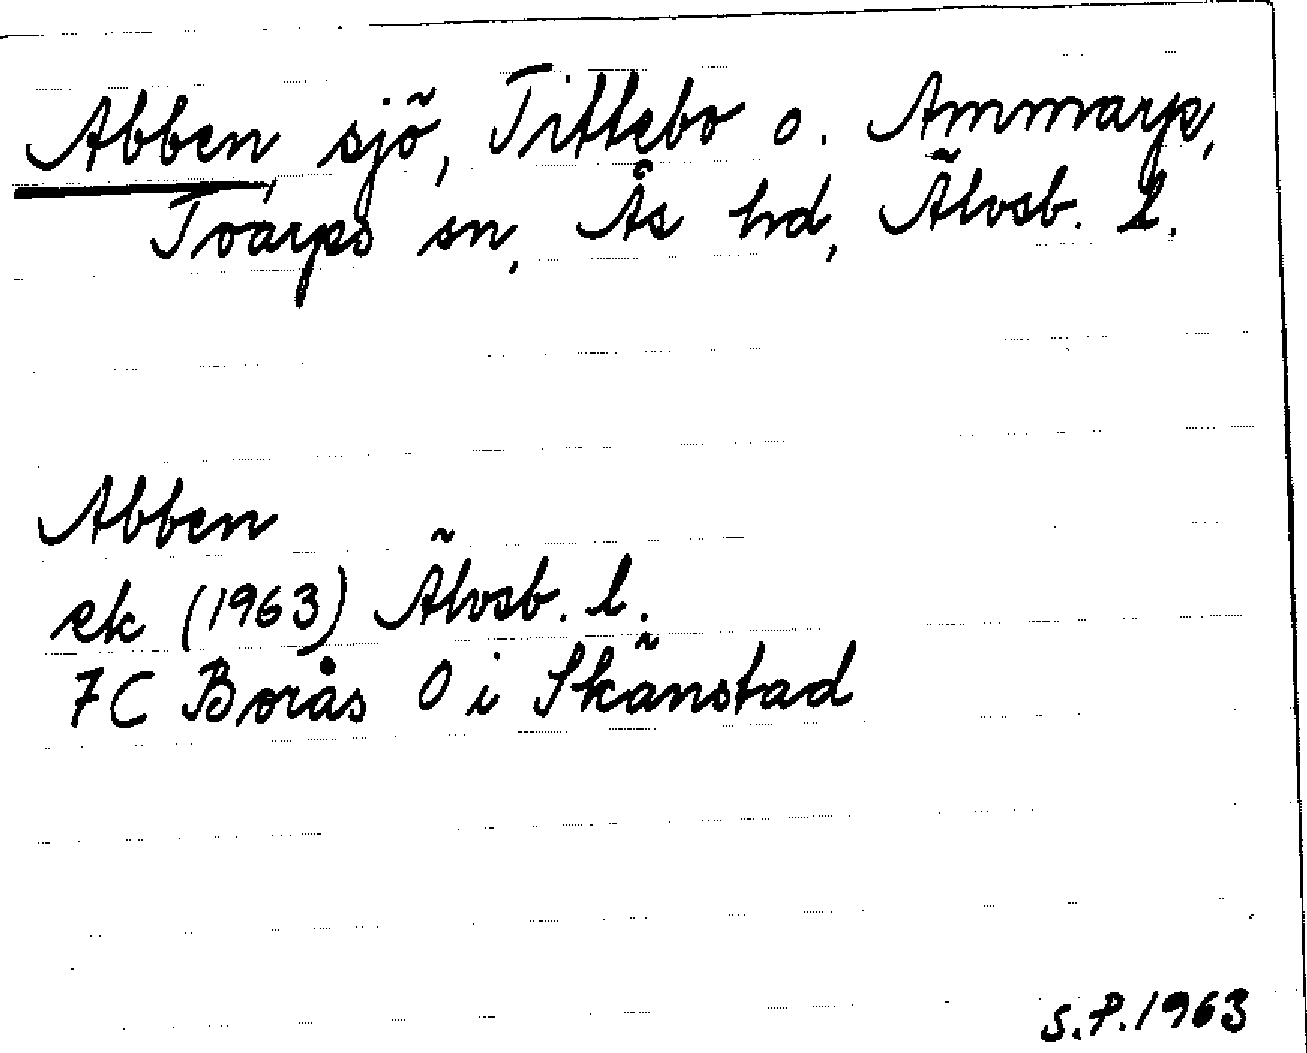 Abben, sjö, Tittebo o. Ammarp,
Tvärps sn, Ås hd, Älvsb. l.
Abben
ek (1963) Älvsb. l.
7C Borås O i Skänstad
S.P. 1963